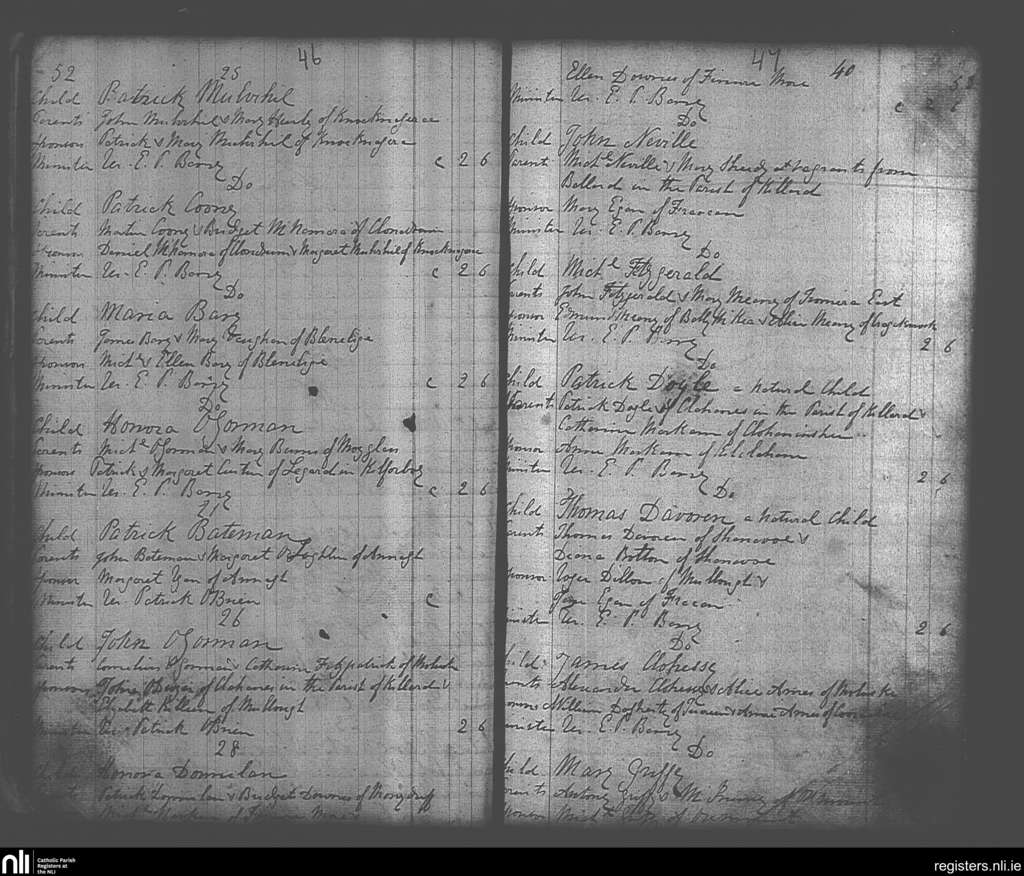 46
52 25
Child Patrick Mulvihil
Parents John Mulvihil & Mary Healy of Knocknagare
Sponsors Patrick & Mary Mulvihil of Knocknagare
Minister Vr. E. P. Barry c 2 6
Do
Child Patrick Cooney
Parents Martin Cooney & Bridget McNamara of Clonadrum
Sponsors Daniel McNamara of Clonadrum & Margaret Mulvihil of Knocknagare
Minister Vr. E. P. Barry c 2 6
Do
Child Maria Bary
Parents James Bary & Mary Vaughan of
Sponsors Michl. & Ellen Bary of
Minister Vr. E. P. Barry c 2 6
Do
Child Honora O'Gorman
Parents Michl. O'Gorman & Mary Burns of Moyglass
Sponsors Patrick & Margaret of in
Minister Vr. E. P. Barry c 2 6
21
Child Patrick Bateman
Parents John Bateman & Margaret O'Loghlin of Annagh
Sponsor Margaret Egan of Annagh
Minister Vr. Patrick O'Brien c
26
Child John O'Gorman
Parents Cornelius O'Gorman & Catherine Fitzpatrick of
Sponsors John of Clohanes in the Parish of Killard &
Killeen of Mullough
Minister Vr. Patrick O'Brien 2 6
28
Child Honora Donnelan
Parents Patrick Donnelan & Bridget Downes of
of
47
40
58
Ellen Downes of Finnure More
Minister Vr. E. P. Barry c 2 6
Do
Child John Neville
Parent Michl. Neville & Mary Sheedy at vagrants from
in the Parish of Killard
Sponsor Mary Egan of Freacan
Minister Vr. E. P. Barry
Do
Child Michl. Fitzgerald
Parents John Fitzgerald & Mary Meany of East
Sponsor Edmund Meany of & Meany of
Minister Vr. E. P. Barry 2 6
Do
Child Patrick Doyle a Natural Child
Parents Patrick Doyle of Clohanes in the Parish of Killard &
Catherine Markam of
Sponsor Anne Markam of
Minister Vr. E. P. Barry 2 6
Do
Child Thomas Davoren a Natural Child
Parents Thomas Davoren of Shanavoe &
of Shanavoe
Sponsor Roger Dillon of Mullough &
Egan of Freacan
Minister Vr. E. P. Barry 2 6
Do
Child James Clohessy
Parents Alexander Clohessy & Alice of
William Dogherty of & Anne of
Minister Vr. E. P. Barry
Do
Child Mary Griffy
Parents Antony Griffy & of
Sponsor Michl. of
nli Catholic Parish
Registers at
the NLI
registers.nli.ie